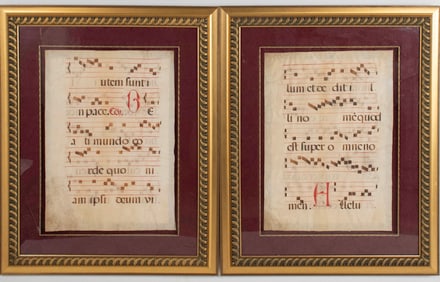 utem sunt i
n pace. Co. B E
a ti mundo co
rde quo ni
am ipsi deum vi
lum et de dit i
li no mē quod
est super o mne no
men. A llelu